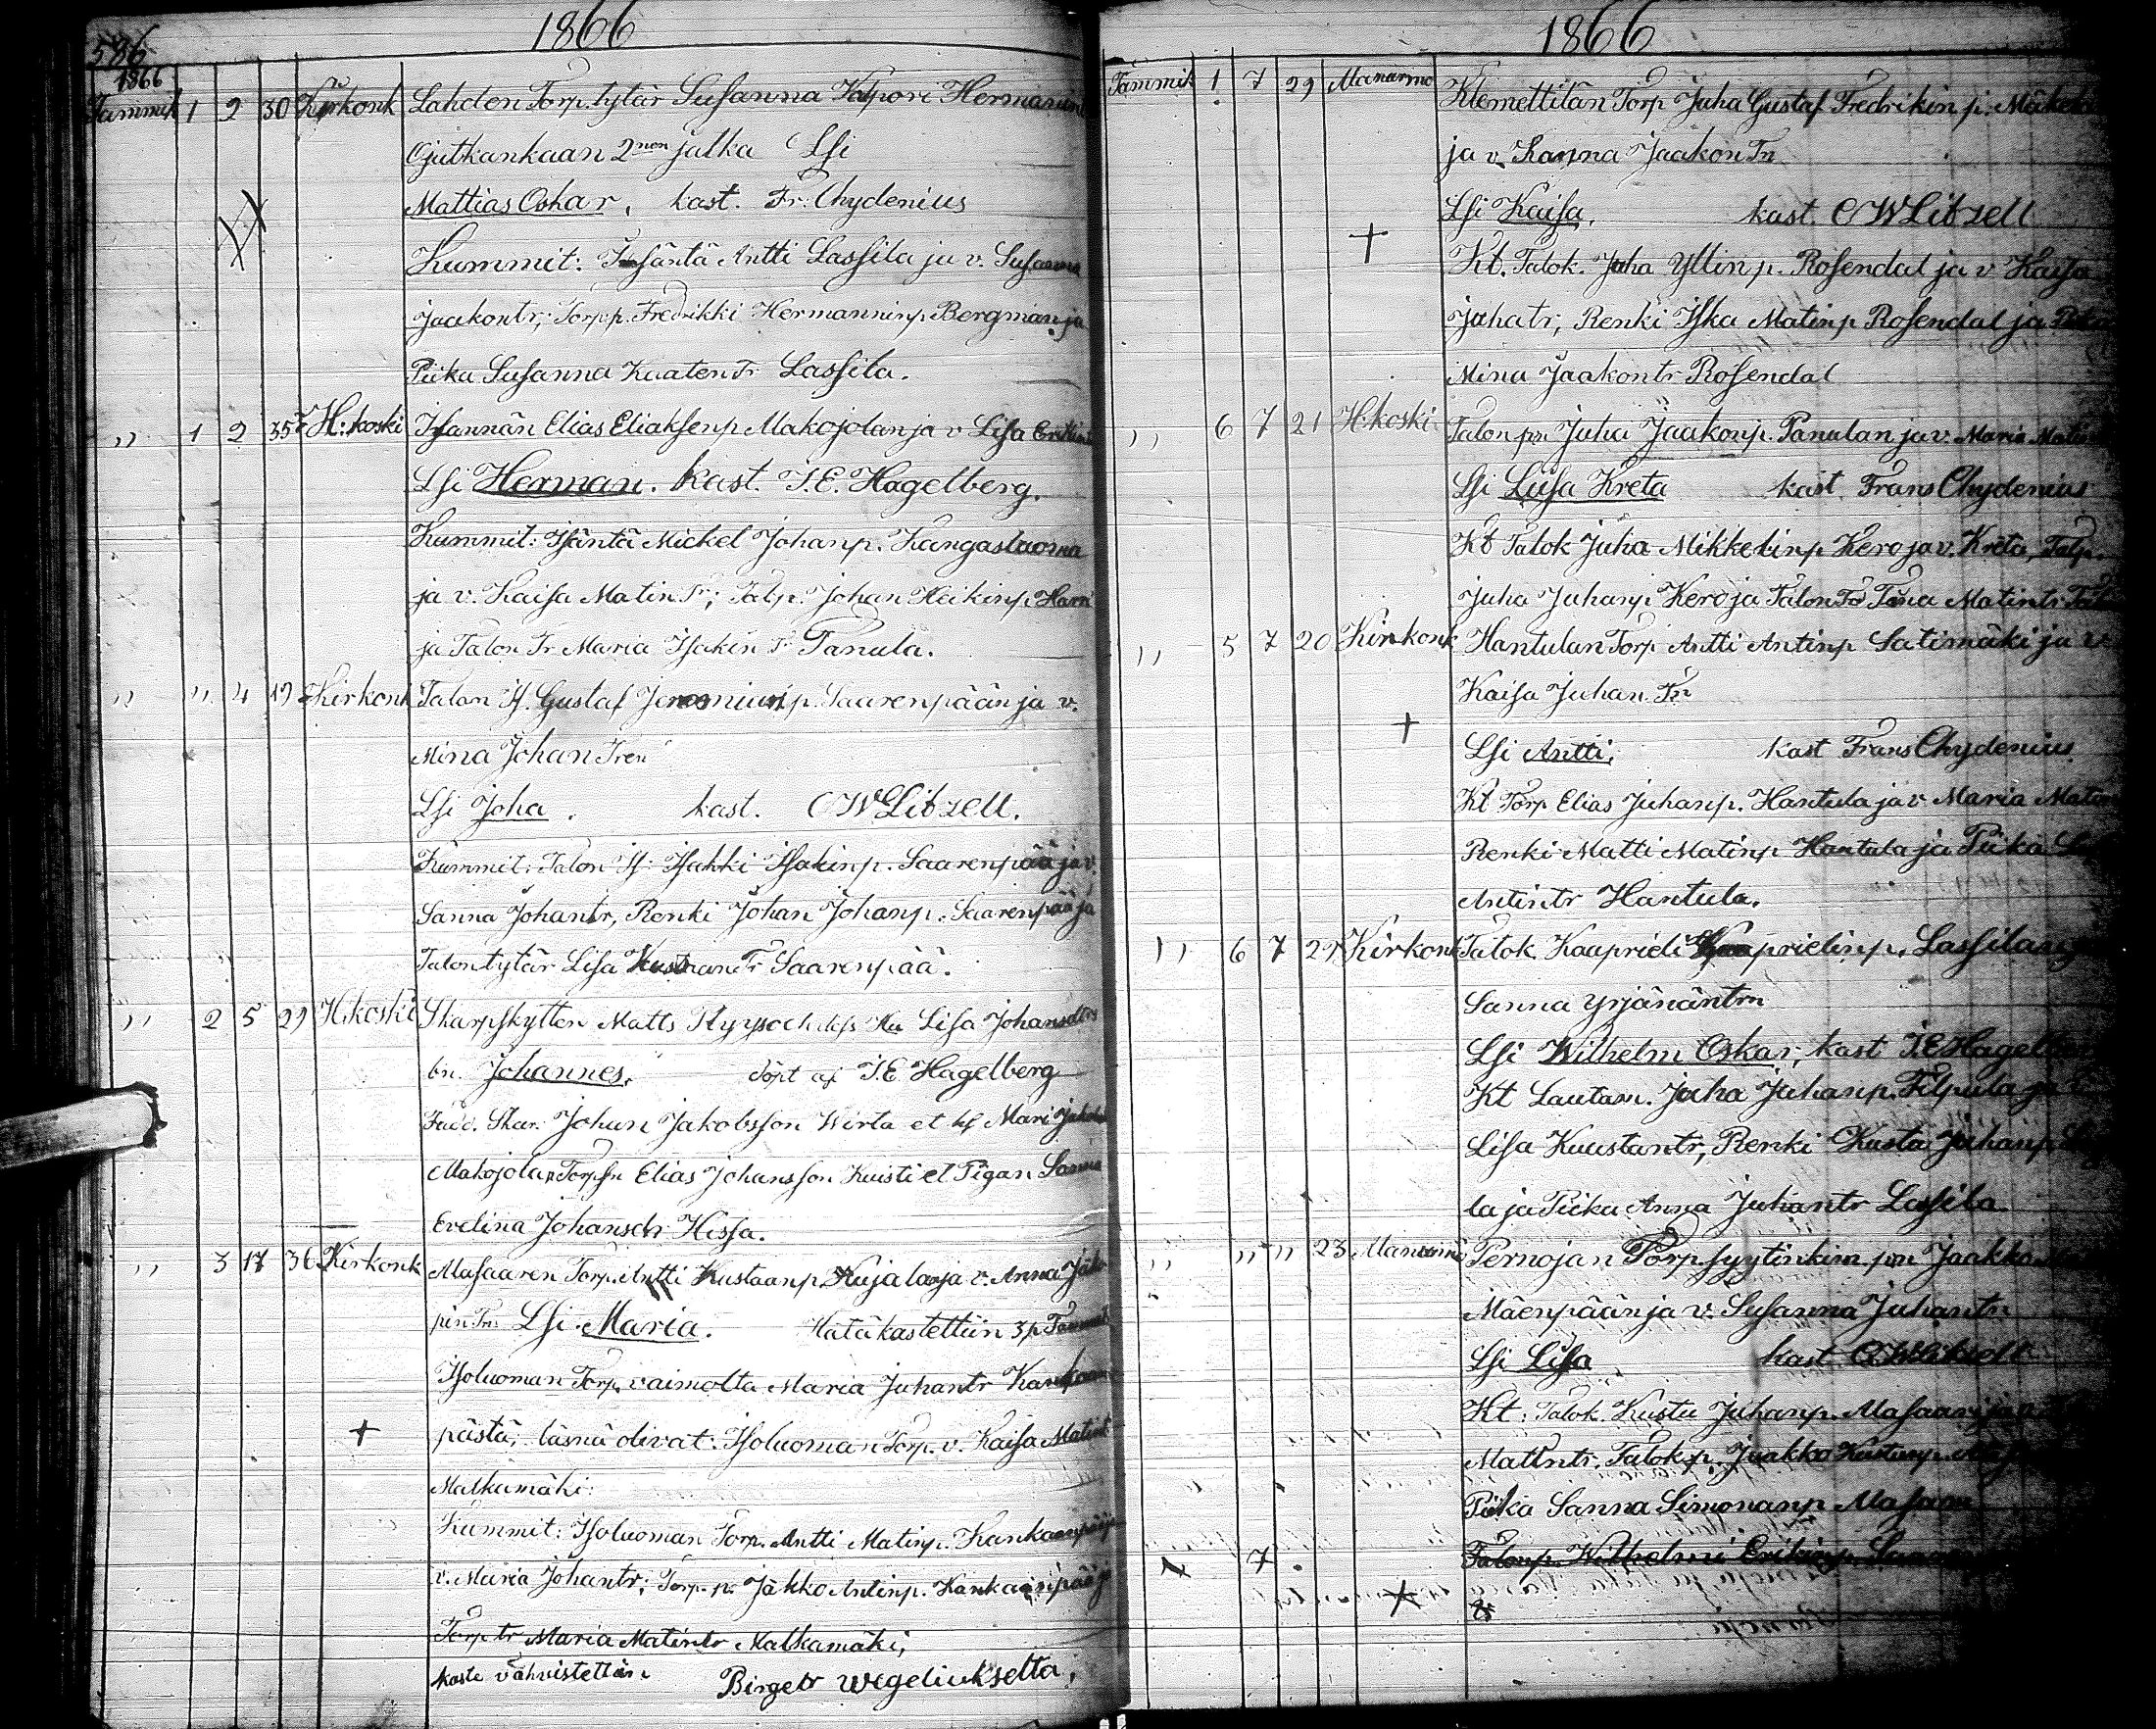 586
1866
1866
Tammik 1 2 30 Kirkonk Lahden Torp. tytär Susanna Hermanin
Ojutkankaan 2non jalka Lsi
Mattias Oskar, kast. Fr: Chydenius
Kummit: Isäntä Antti Lassila ja v. Susanna
Jaakontr; Torp. p. Fredrikki Hermanninp Bergman ja
Piika Susanna Kaaten Tr Lassila.
" 1 2 35 H:koski Isännän Elias Eliaksenp Makojolan ja v Lisa
Lsi Herman. kast. I.E. Hagelberg.
Kummit: Isäntä Mickel Johanp. Kangasluoma
ja v. Kaisa Matin Tr; Talp. Johan Heikinp.
ja Talon Tr Maria Isakin Tr Panula.
" " 4 19 Kirkonk Talon Is. Gustaf p. Saarenpään ja v.
Mina Johan Tren
Lsi Joha. kast. CWLitzell.
Kummit: Talon Is: Isakki Isakinp. Saarenpää ja v.
Sanna Johantr, Renki Johan Johanp. Saarenpää ja
Talontytär Lisa Kustaan Tr Saarenpää.
" 2 5 29 H:koski Skarpskytten Matts och dess Hu Lisa Johansdtrs
bn. Johannes, döpt af I.E. Hagelberg
Fadd. Skar. Johan Jakobsson Wirta et hf Mari
Makojolan Torpsn Elias Johansson Kuisti et Pigan Sanna
Evelina Johansdr Hissa.
" 3 17 36 Kirkonk Masaaren Torp. Antti Kustaanp. Kujalan ja v. Anna
pin Trn Lsi Maria. Hätäkastettiin 3 p Tammik
Isoluoman Torp. vaimolta Maria Juhantr
pästä; läsnä olivat: Isoluoman Torp. v. Kaisa Matintr
Malkamäki:
Kummit: Isoluoman Torp. Antti Matinp. Kankaanpää ja
v. Maria Johantr; Torp. p. Jäkko Antinp. Kankaanpää ja
Torp tr Maria Matintr Malkamäki,
kaste vahvistettiin Birger Wegeliukselta,
1866
Tammik 1 7 29 Klemettilän Torp Juha Gustaf Fredrikin p.
ja v. Sanna Jaakon Tn
Lsi Kaisa, kast. CWLitzell
Kt. Talok. Juha Yllin p. Rosendal ja v Kaisa
Juhatr, Renki Iska Matinp Rosendal ja
Mina Jaakontr Rosendal
" 6 7 21 H:koski Talon pn Juha Jaakonp. Panulan ja v. Maria
Lsi Luisa Kreta kast Frans Chydenius
Kt Talok Juha Mikkelinp Kero ja v. Kreta, Talp.
Juha Juhanp Kero ja Talon Matintr
" 5 7 20 Kirkonk Hantulan Torp Antti Antinp Satimäki ja v
Kaisa Juhan Tn
Lsi Antti, kast Frans Chydenius
Kt Torp Elias Juhanp. Hantula ja v Maria
Renki Matti Matinp Hantula ja Piika
Antintr Hantula.
" 6 7 Kirkonk Talok. Kaaprieli Kaaprielinp. Lassilan
Sanna Yrjänäntrn
Lsi Wilhelm Oskar, kast I.E Hagelberg
Kt Lautam. Juha Juhanp. Filpula ja
Lisa Kuustantr, Renki Kusta Juhanp
la ja Piika Anna Juhantr Lassila
" " " 23 Pernojan Torp. syytinkim. pn Jaakko
Mäenpään ja v. Susanna Juhantr
Lsi Lisa kast CWLitzell
Kt: Talok. Kustu Juhanp. Masaari ja
Mattntr. Talok. p. Jaakko Kustanp.
Piika Sanna Simonanp Masaari
7 Talonp. Wilhelmi Erikinp